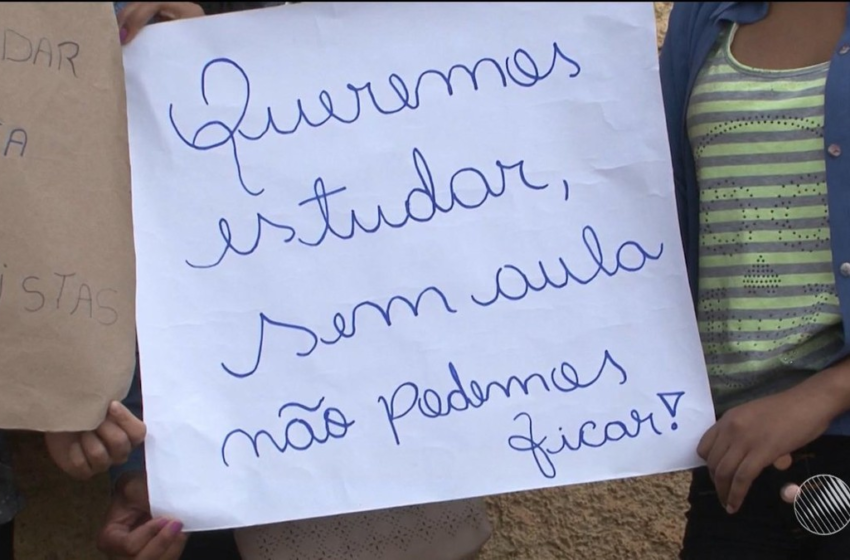 DAR
A
ISTAS
Queremos
estudar,
sem aula
não podemos
ficar!